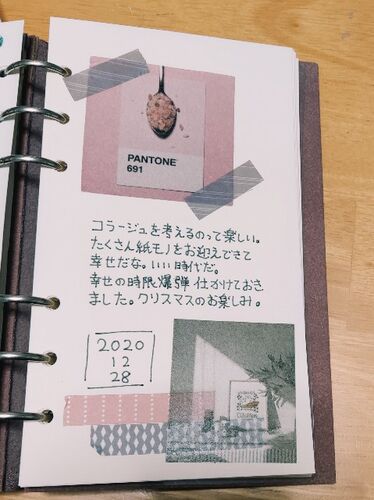 PANTONE®
691
コラージュを考えるのって楽しい。
たくさん紙モノをお迎えできて
幸せだな。いい時代だ。
幸せの時限爆弾仕かけておき
ました。クリスマスのお楽しみ。
2020
12
28